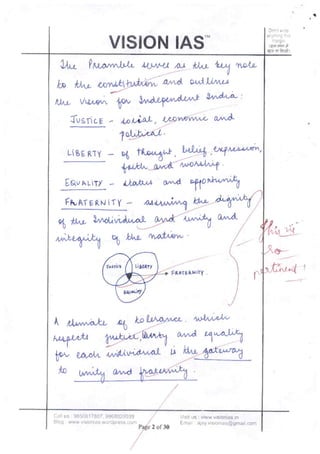 VISION IAS™
Don't write
anything this
margin
The Preamble serves as the key note
to the constitution and outlines
the vision for Independent India:
JUSTICE - social, economic and
political.
LIBERTY - of thought, belief, expression,
faith and worship.
EQUALITY - status and opportunity
FRATERNITY - assuring the dignity
of the Individual and unity and
integrity of the nation.
This is
so
pertinent!
JUSTICE
LIBERTY
FRATERNITY
EQUALITY
A climate of tolerance which
respects justice, liberty and equality
for each individual is the gateway
to unity and fraternity.
Call us : 9650617807, 9968029039
Visit us : www.visionias.in
Blog : www.visionias.wordpress.com
Page 2 of 30
Email : ajay.visionias@gmail.com